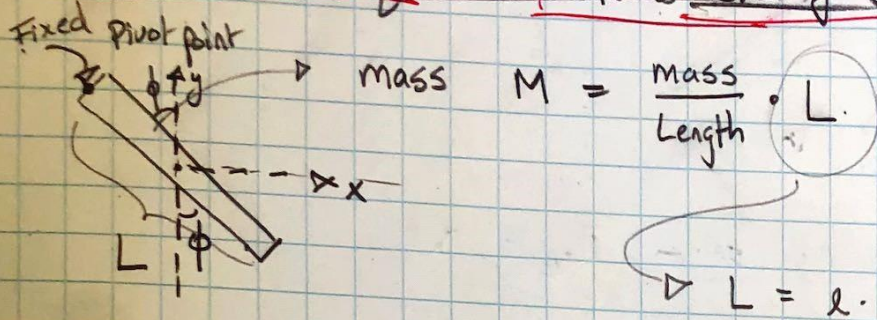 Fixed Pivot point
ϕ y
mass M = mass / Length · L.
x
L ϕ
L = l.